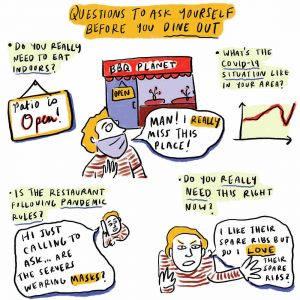 QUESTIONS TO ASK YOURSELF
BEFORE YOU DINE OUT
• DO YOU REALLY
NEED TO EAT
INDOORS?
patio is
Open!
BBQ PLANET
OPEN
MAN! I REALLY
MISS THIS
PLACE!
• WHAT'S THE
COVID-19
SITUATION LIKE
IN YOUR AREA?
• IS THE RESTAURANT
FOLLOWING PANDEMIC
RULES?
HI JUST
CALLING TO
ASK... ARE
THE SERVERS
WEARING MASKS?
• DO YOU REALLY
NEED THIS RIGHT
NOW?
I LIKE THEIR
SPARE RIBS BUT
DO I LOVE
THEIR
SPARE RIBS?